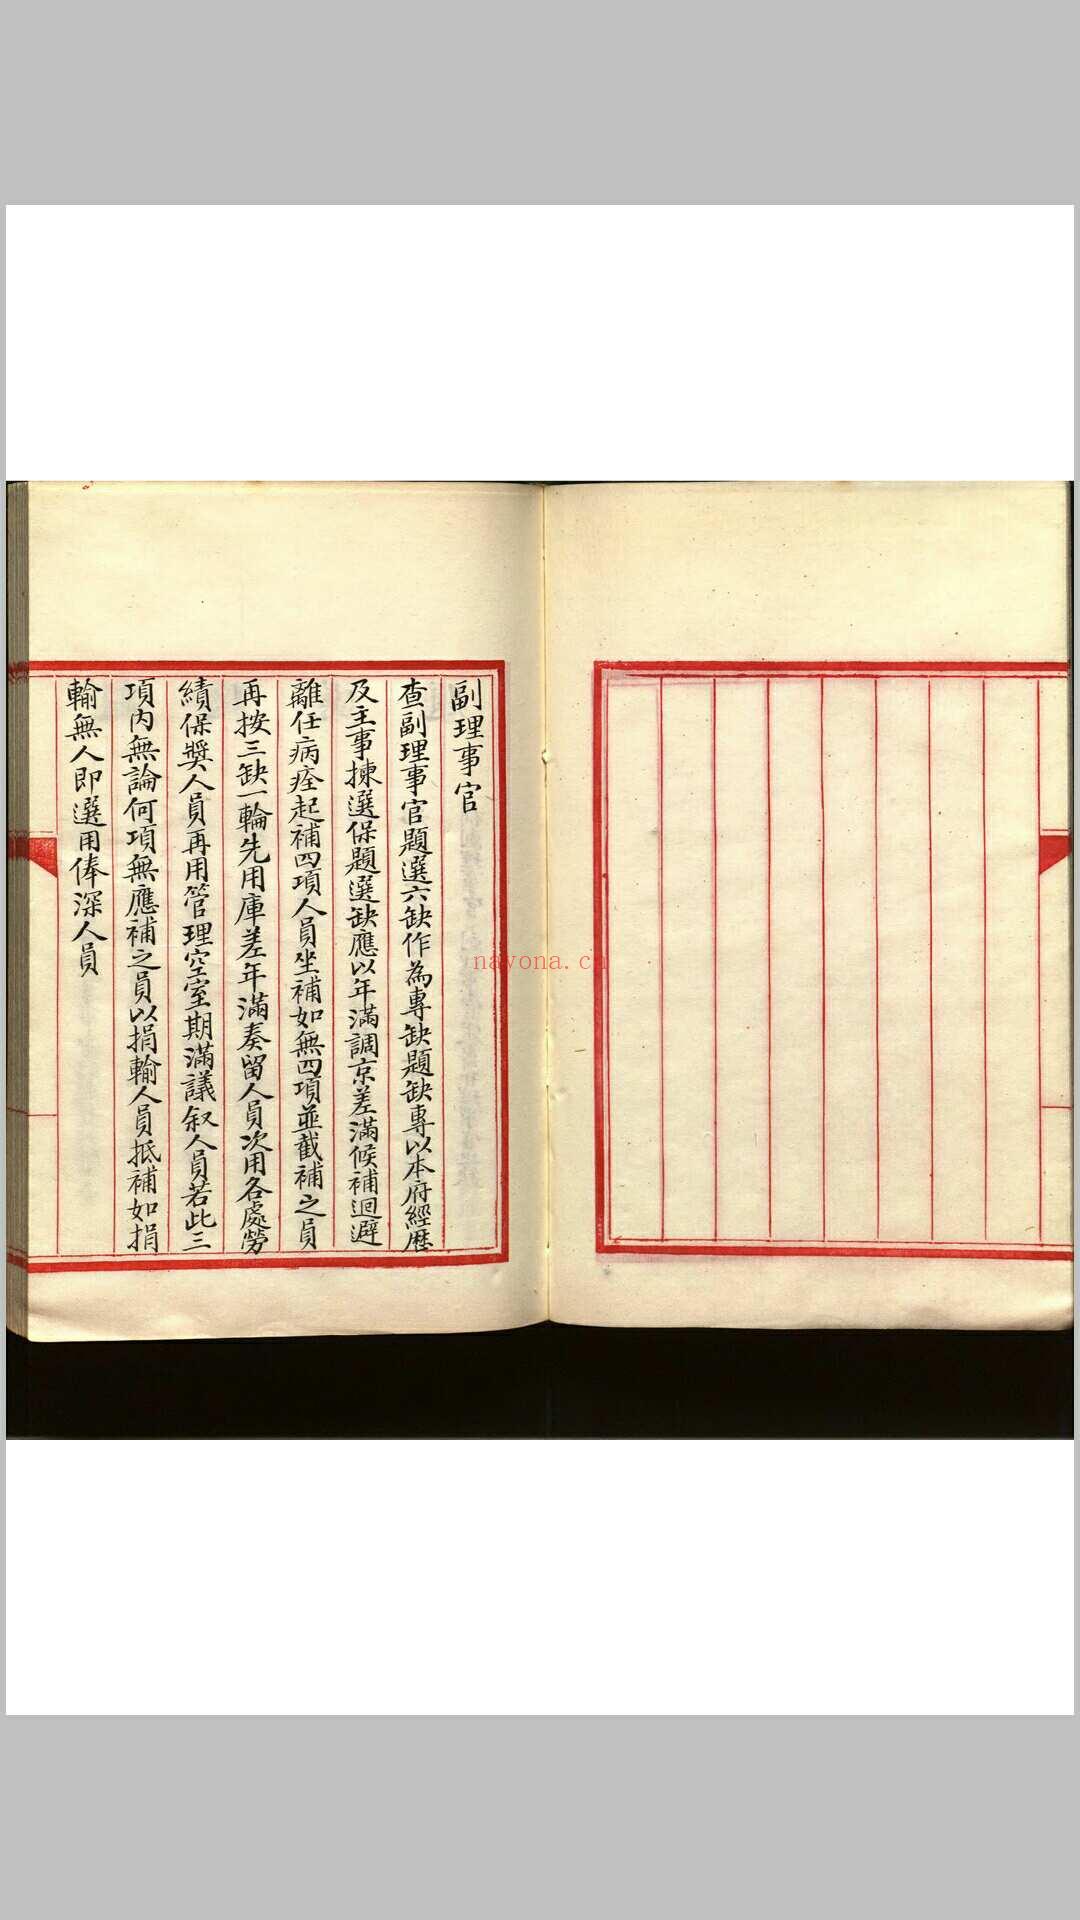 副理事官
查副理事官題選六缺作為專缺題缺專以本府經歷
及主事揀選保題選缺應以年滿調京差滿候補迴避
離任病痊起補四項人員坐補如無四項並截補之員
再按三缺一輪先用庫差年滿奏留人員次用各處勞
績保獎人員再用管理空室期滿議叙人員若此三
項內無論何項無應補之員以捐輸人員抵補如捐
輸無人即選用俸深人員
nayona.cn